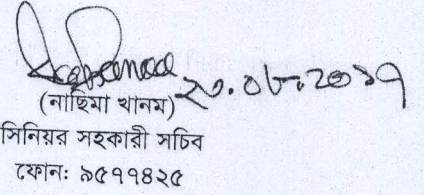 ২০.০৮.২০১৭
(নাছিমা খানম)
সিনিয়র সহকারী সচিব
ফোন: ৯৫৭৭৪২৫